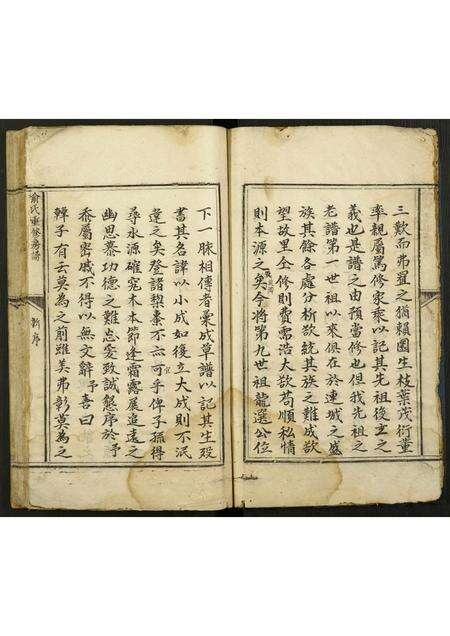 三歎而弗置之猶賴園生枝葉茂衍董
率親屬篤修家乘以記其先祖後立之
義也是譜之由預當修也但我先祖之
老譜第一世祖以來俱在於連城之
族其餘各處分析欲統其族之難成欲
望故里仝修則費需浩大欲苟順私情
則本源之矣今將第九世祖龍選公位
下一脉相傳者彙成草譜以記其生歿
書其名諱以小成如後立大成則不泯
違之矣登諸梨棗不亦可乎俾子孫得
尋水源確究木本節逢霜露展追遠之
幽思慕功德之難忘爰致誠懇序於予
忝屬密戚不得以無文辭予喜曰
韓子有云莫為之前雖美弗彰莫為之
俞氏重修房譜
新序